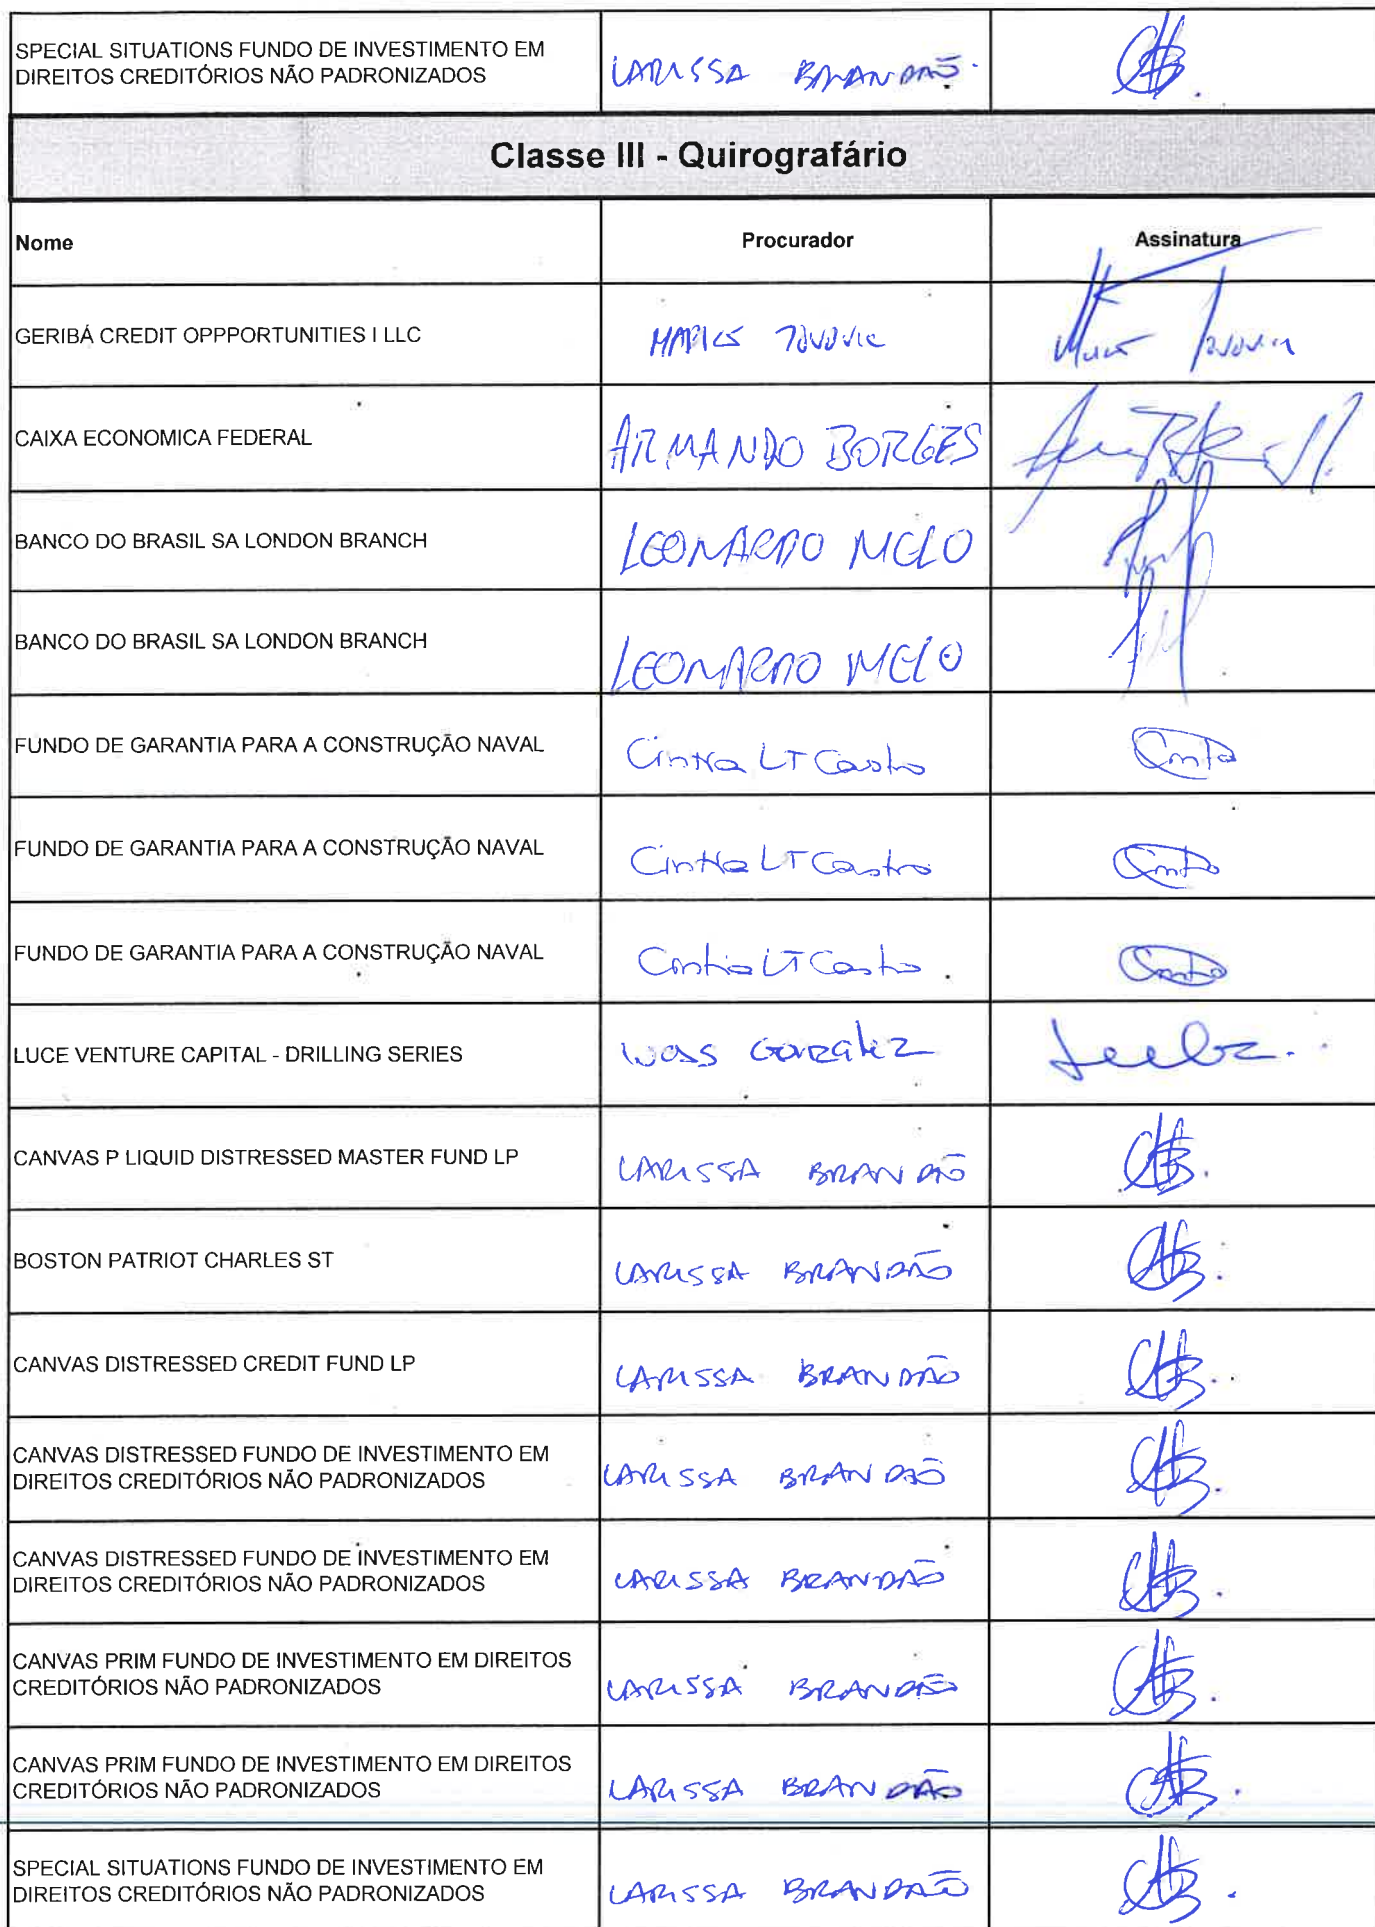 SPECIAL SITUATIONS FUNDO DE INVESTIMENTO EM
DIREITOS CREDITÓRIOS NÃO PADRONIZADOS
LARISSA BRANDÃO
Classe III - Quirografário
Nome Procurador Assinatura
GERIBÁ CREDIT OPPPORTUNITIES I LLC
CAIXA ECONOMICA FEDERAL ARMANDO BORGES
BANCO DO BRASIL SA LONDON BRANCH LEONARDO MELO
BANCO DO BRASIL SA LONDON BRANCH LEONARDO MELO
FUNDO DE GARANTIA PARA A CONSTRUÇÃO NAVAL Cintia LT Castro
FUNDO DE GARANTIA PARA A CONSTRUÇÃO NAVAL Cintia LT Castro
FUNDO DE GARANTIA PARA A CONSTRUÇÃO NAVAL Cintia LT Castro
LUCE VENTURE CAPITAL - DRILLING SERIES
CANVAS P LIQUID DISTRESSED MASTER FUND LP LARISSA BRANDÃO
BOSTON PATRIOT CHARLES ST LARISSA BRANDÃO
CANVAS DISTRESSED CREDIT FUND LP LARISSA BRANDÃO
CANVAS DISTRESSED FUNDO DE INVESTIMENTO EM
DIREITOS CREDITÓRIOS NÃO PADRONIZADOS
LARISSA BRANDÃO
CANVAS DISTRESSED FUNDO DE INVESTIMENTO EM
DIREITOS CREDITÓRIOS NÃO PADRONIZADOS
LARISSA BRANDÃO
CANVAS PRIM FUNDO DE INVESTIMENTO EM DIREITOS
CREDITÓRIOS NÃO PADRONIZADOS
LARISSA BRANDÃO
CANVAS PRIM FUNDO DE INVESTIMENTO EM DIREITOS
CREDITÓRIOS NÃO PADRONIZADOS
LARISSA BRANDÃO
SPECIAL SITUATIONS FUNDO DE INVESTIMENTO EM
DIREITOS CREDITÓRIOS NÃO PADRONIZADOS
LARISSA BRANDÃO